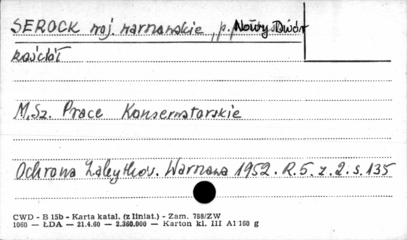 SEROCK woj. warszawskie, p. Nowy Dwór
kościół
M.Sz. Prace Konserwatorskie
Ochrona Zabytków. Warszawa 1952. R.5. z. 2. s. 135
CWD - B 15b - Karta katal. (z liniat.) - Zam. 788/ZW
1060 — ŁDA — 21.4.60 — 2.360.000 — Karton kl. III A1 160 g